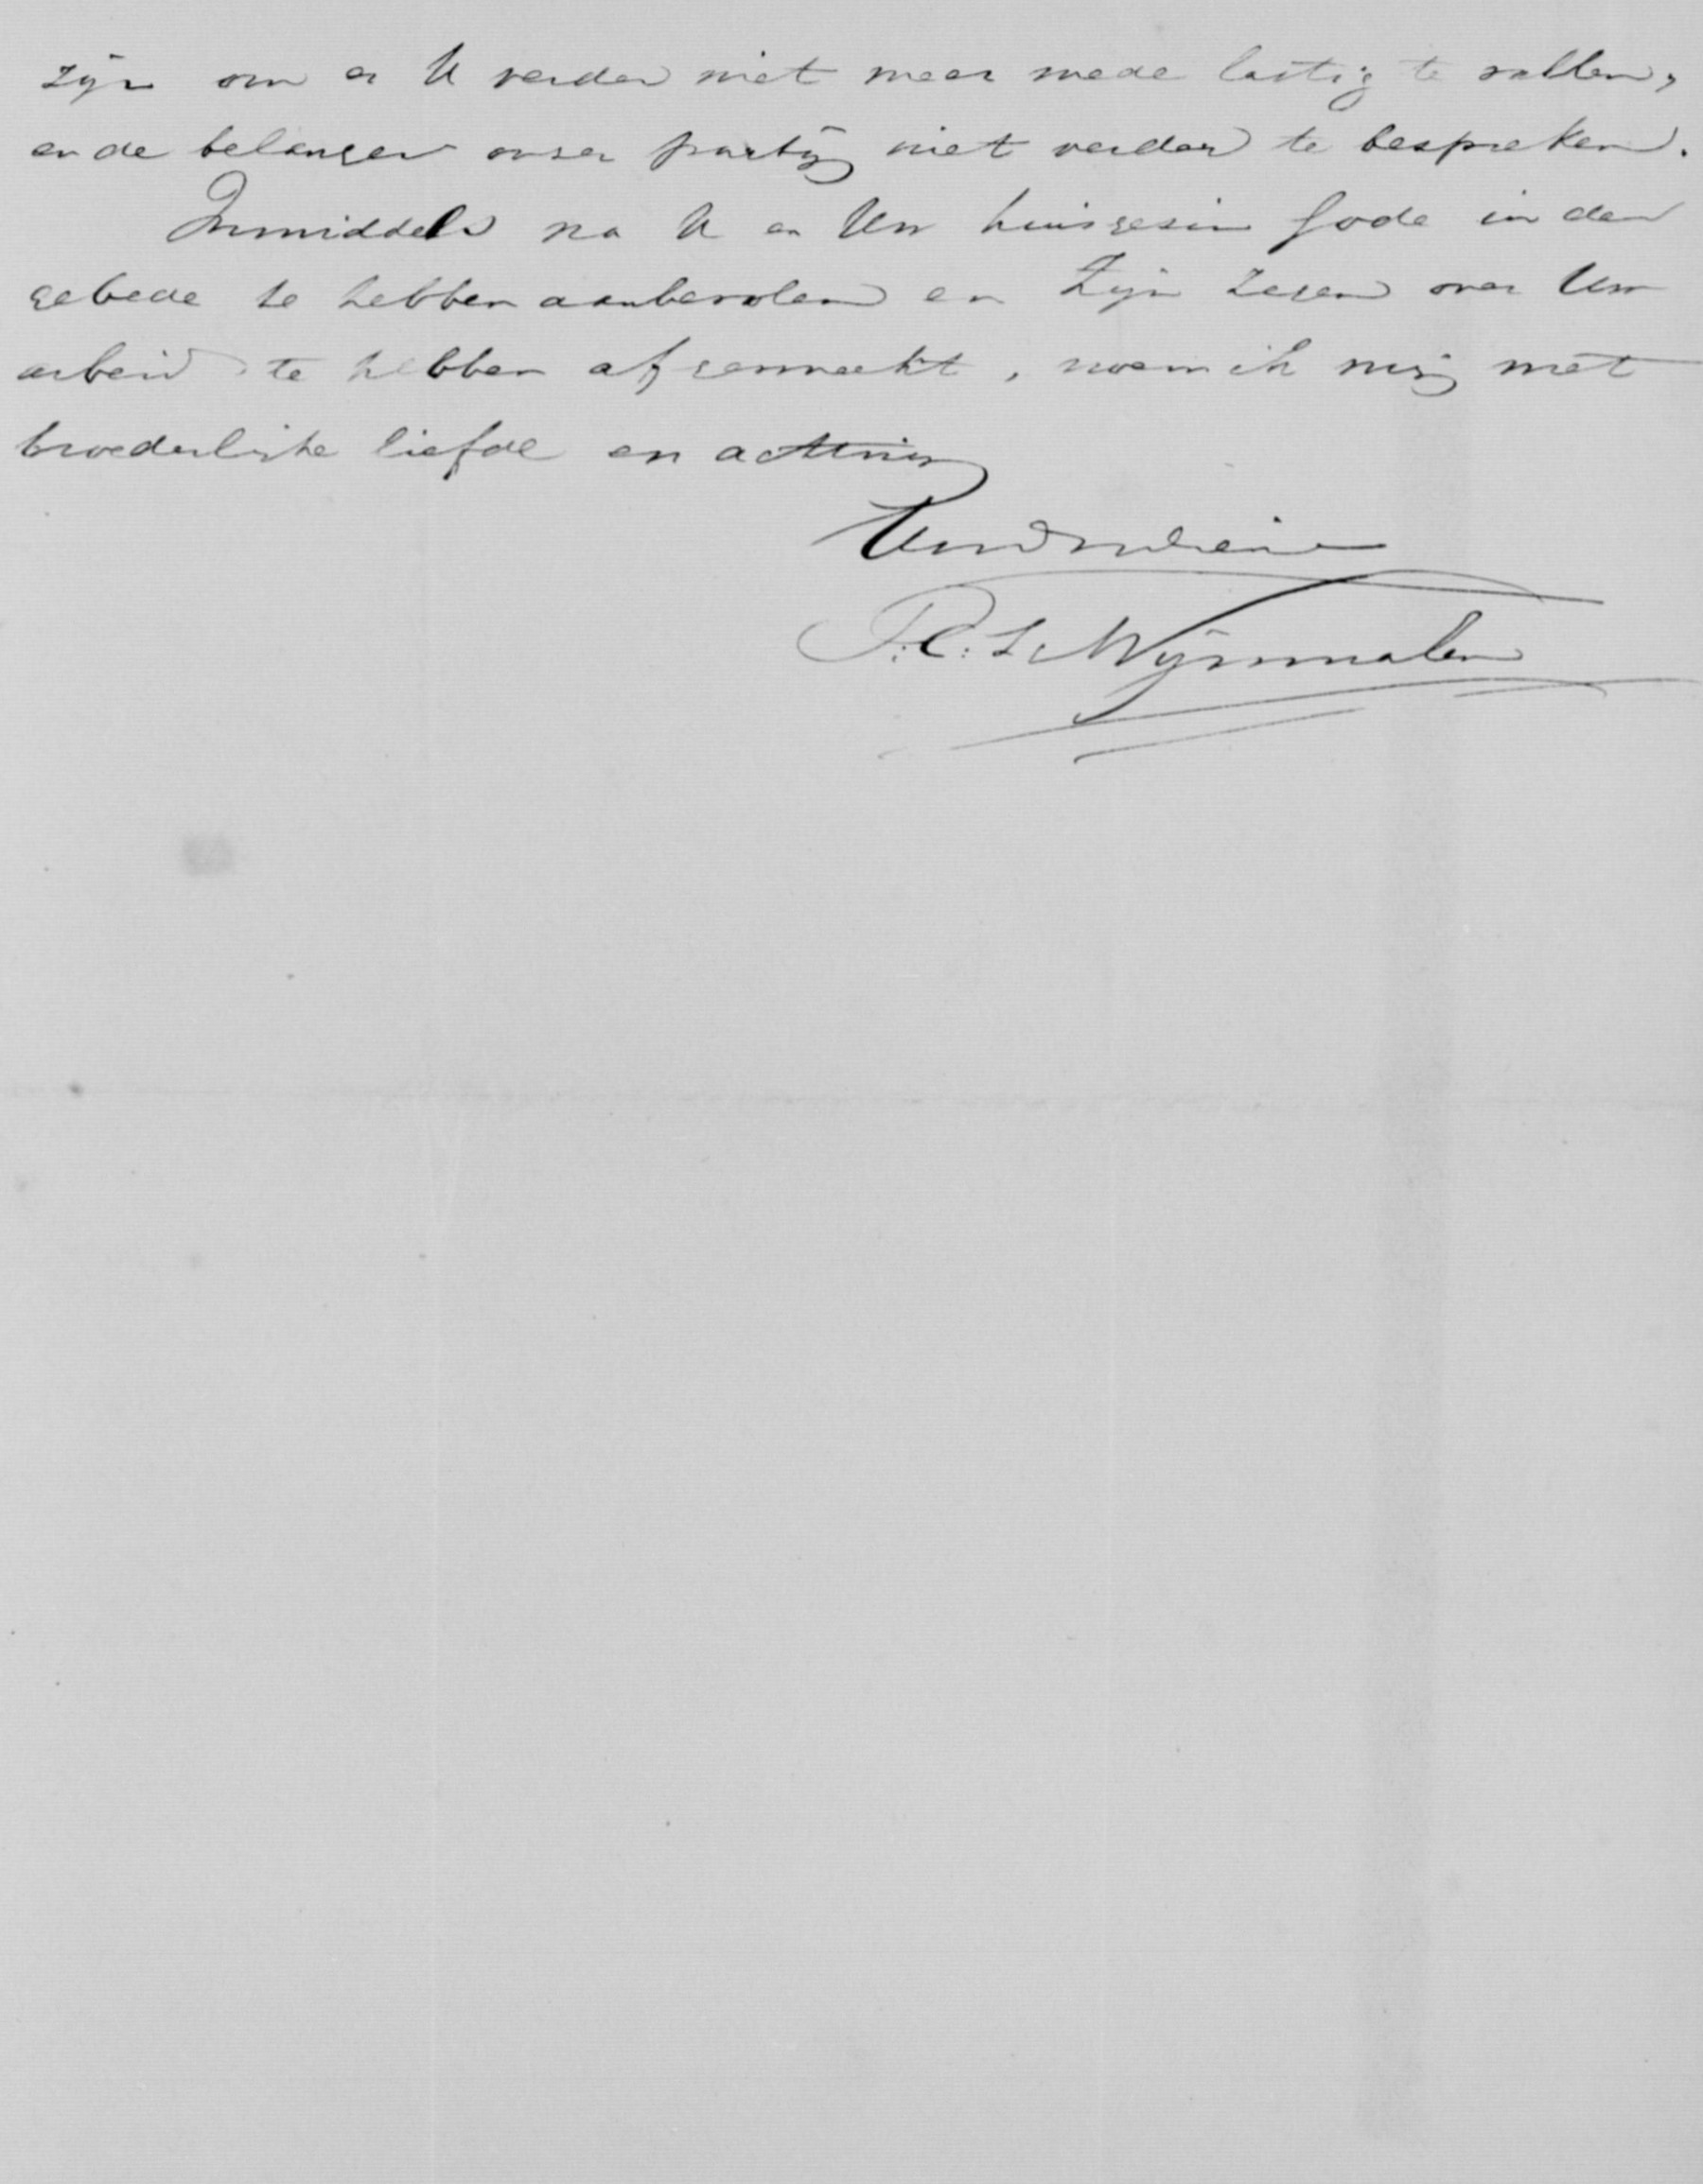 zijn om er U verder niet meer mede lastig te vallen,
en de belangen onser partij niet verder te bespreken.
Inmiddels na U en Uw huisgesin Gode in den
gebede te hebben aanbevolen en Zijn Zegen over Uw
arbeid te hebben afgesmeekt, noem ik mij met
broederlijke liefde en achting
Uw dw dienr
P.C. L Wijnmalen